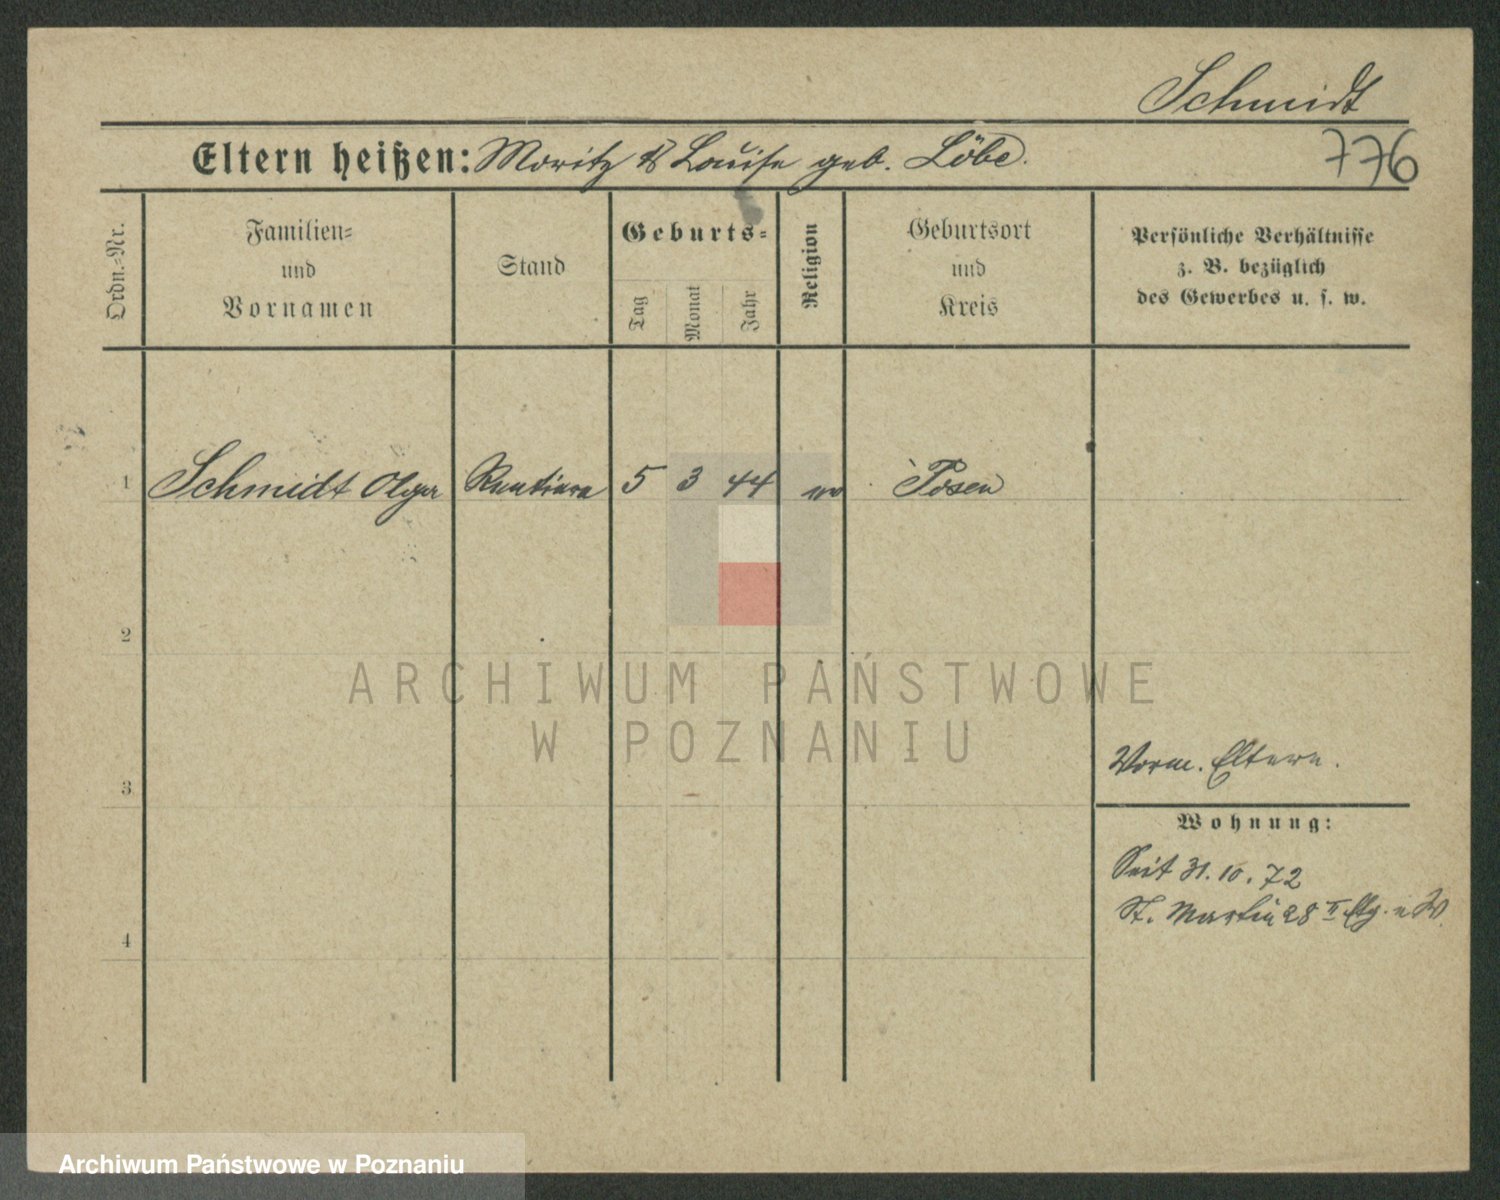 Schmidt
776
Eltern heißen: Moritz & Louise geb. Löbe.
Ordn.-Nr.
Familien-
und
Vornamen
Stand
Geburts-
Tag
Monat
Jahr
Religion
Geburtsort
und
Kreis
Persönliche Verhältnisse
z. B. bezüglich
des Gewerbes u. s. w.
1 Schmidt Olga Rentiere 5 3 44 Posen
2
ARCHIWUM PAŃSTWOWE
W POZNANIU
3
Vorm. Eltern.
Wohnung:
Seit 31.10.72
St. Martin 28 II
4
Archiwum Państwowe w Poznaniu